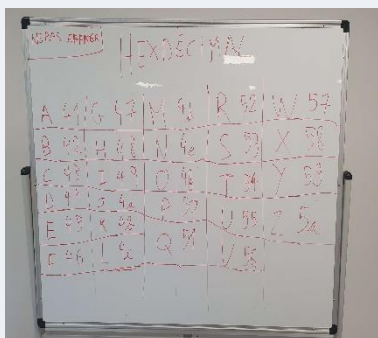 NE PAS EFFACER
HEXDÉCIMAL
A 41 G 47 M 4d R 52 W 57
B 42 H 48 N 4e S 53 X 58
C 43 I 49 O 4f T 54 Y
D 44 J 4a P 50 U 55 Z 5a
E K Q 51 V 56
F 46 L